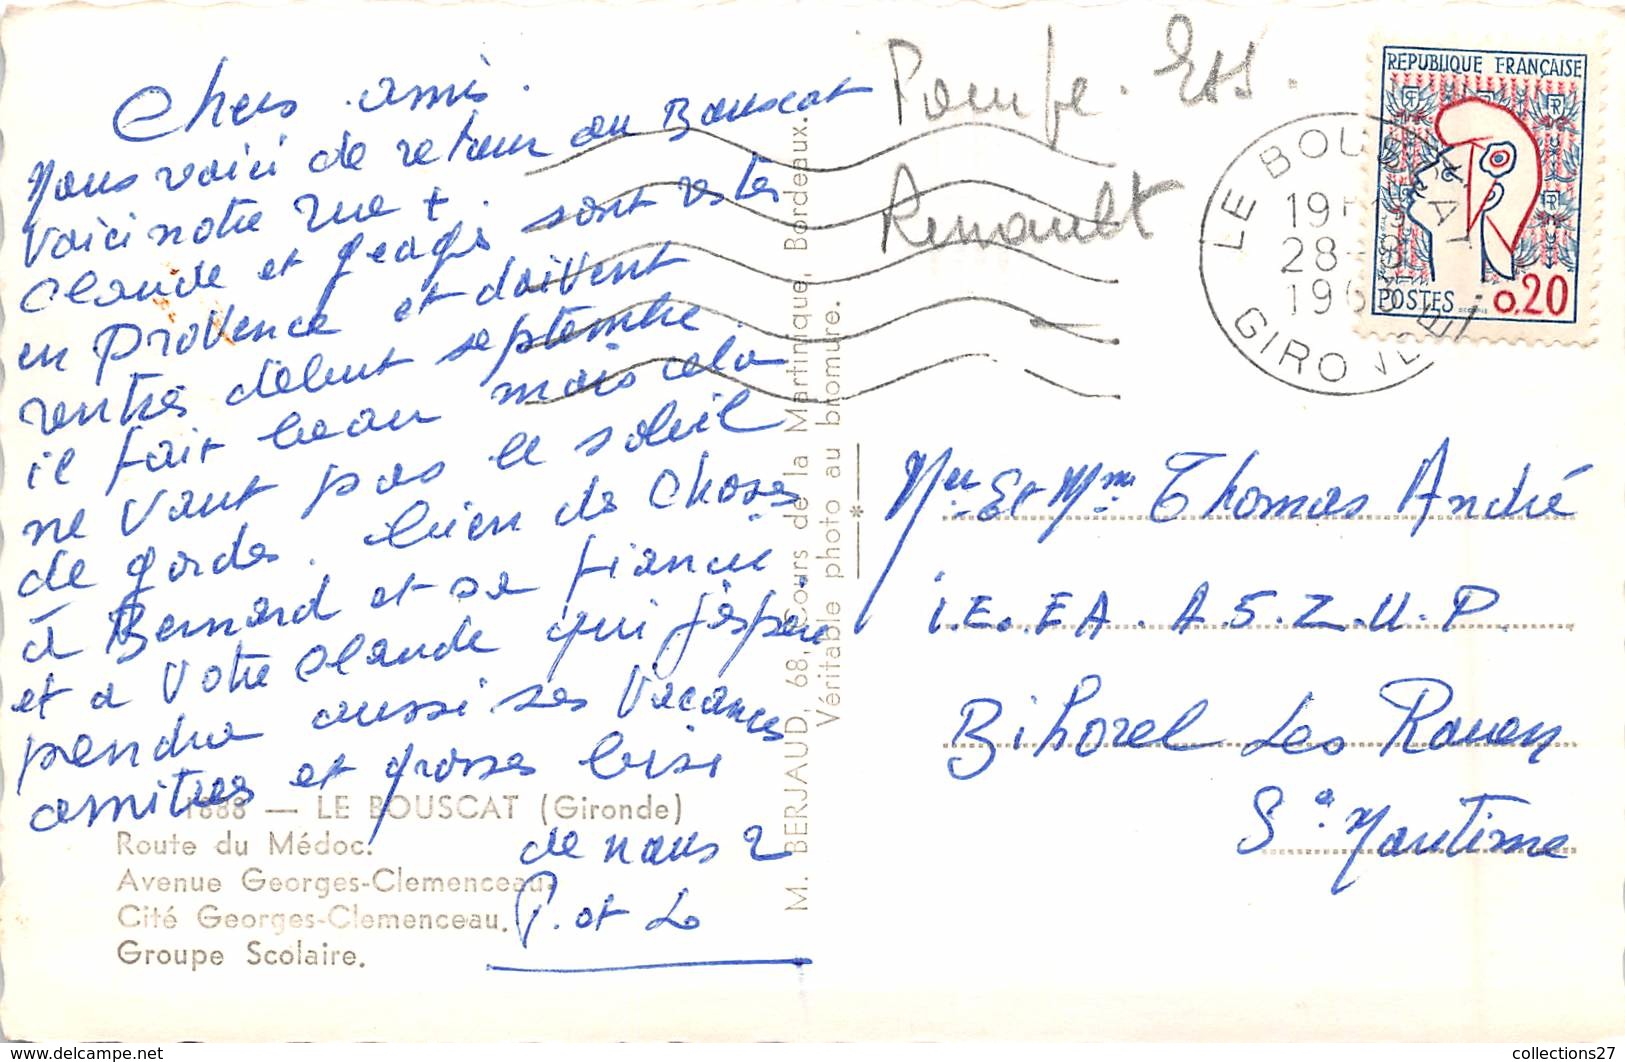 Chers amis.
Nous voici de retour au Bouscat
Voici notre rue +.
Claude et sont restés
en Provence et doivent
rentrés début septembre.
il fait beau mais cela
ne vaut pas le soleil
de gordes. bien de choses
à Bernard et sa fiancee
et a Votre Claude qui j'espère
prendra aussi ses Vacances
amitiés et grosses bisi
de nous 2
P. et L
1888 — LE BOUSCAT (Gironde)
Route du Médoc.
Avenue Georges-Clemenceau.
Cité Georges-Clemenceau.
Groupe Scolaire.
M. BERJAUD, 68, Cours de la Martinique, Bordeaux.
Véritable photo au bromure.
Pompe. Ets.
Renault
LE BOUSCAT
19H
28-8
196
GIRONDE
REPUBLIQUE FRANÇAISE
POSTES 0,20
Mr et Mme Thomas André
i.E. EA. A.5.Z.U.P.
Bihorel Les Rouen
Se Maritime
collections27